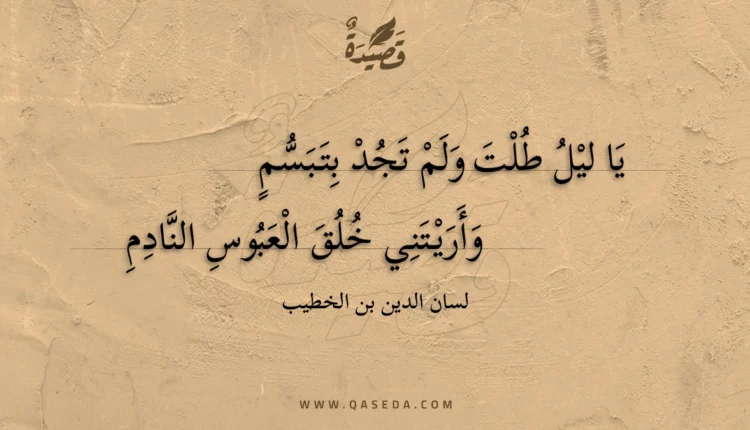 قَصِيْدَةٌ
يَا ليْلُ طُلْتَ وَلَمْ تَجُدْ بِتَبَسُّمٍ
وَأَرَيْتَنِي خُلُقَ الْعَبُوسِ النَّادِمِ
لسان الدين بن الخطيب
WWW.QASEDA.COM